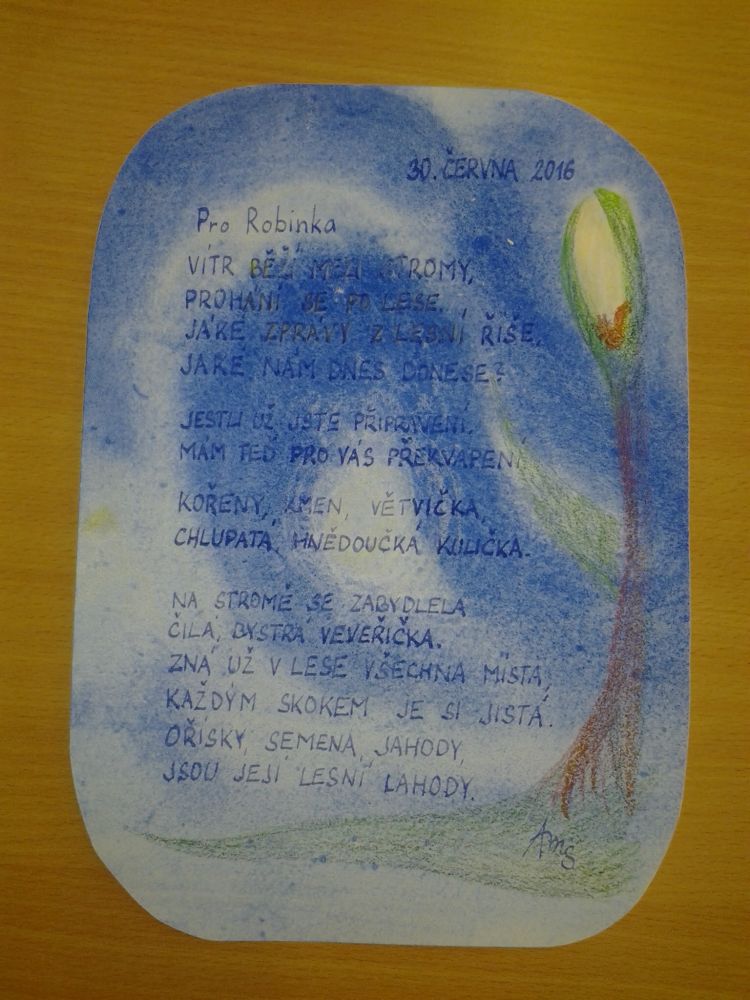 30. ČERVNA 2016
Pro Robinka
VÍTR BĚŽÍ MEZI STROMY,
PROHÁNÍ SE PO LESE.
JAKÉ ZPRÁVY Z LESNÍ ŘÍŠE,
JAKÉ NÁM DNES DONESE?
JESTLI UŽ JSTE PŘIPRAVENI.
MÁM TEĎ PRO VÁS PŘEKVAPENÍ
KOŘENY, KMEN, VĚTVIČKA,
CHLUPATÁ, HNĚDOUČKÁ KULIČKA.
NA STROMĚ SE ZABYDLELA
ČILÁ, BYSTRÁ VEVEŘIČKA.
ZNÁ UŽ V LESE VŠECHNA MÍSTA,
KAŽDÝM SKOKEM JE SI JISTÁ.
OŘÍŠKY, SEMENA, JAHODY,
JSOU JEJÍ LESNÍ LAHODY.
AMS